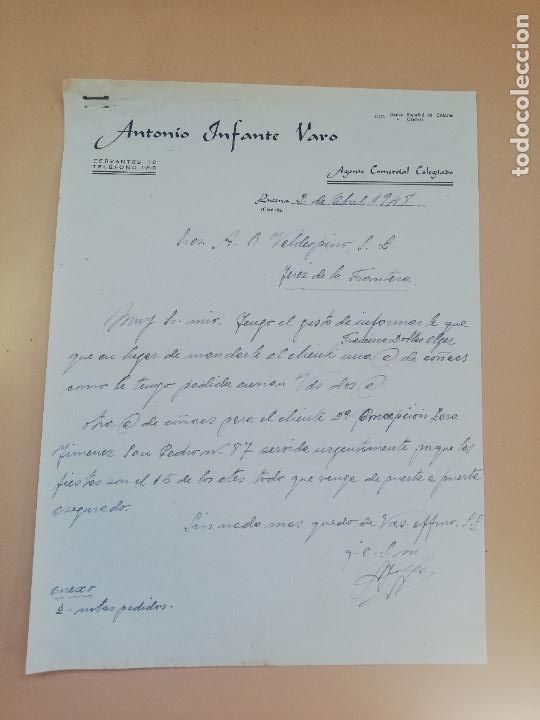 Antonio Infante Varo
Banco Español de Crédito
Central
CERVANTES, 12
TELÉFONO 150
Agente Comercial Colegiado
Lucena 2 de Abril 1945
Sres. A. R. Valdespino, S. L.
Jerez de la Frontera
Muy Sr. mio. Tengo el gusto de informarle que
Francisco Dobles
que en lugar de mandarle al cliente una @ de coñacs
como le tengo pedida envian Vds dos @
otra @ de coñacs para el cliente Dª Concepcion Lara
Jimenez San Pedro nº. 87 servida urgentemente porque las
fiestas son el 15 de los ctes todo que venga de puerta á puerta
asegurado.
Sin nada mas quedo de Vds. affmo. S.S.
q. e. s. m
anexo
2 - notas pedidos.
todocoleccion